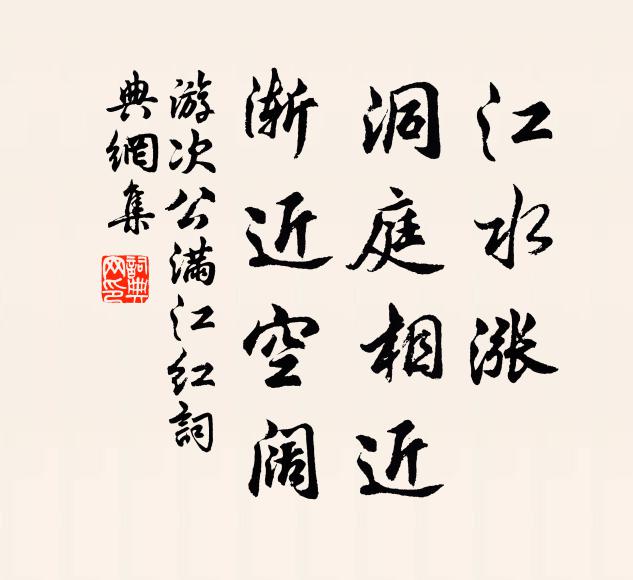 江水涨
洞庭相近
渐近空阔
游次公满江红詞
典網集
詞典網印